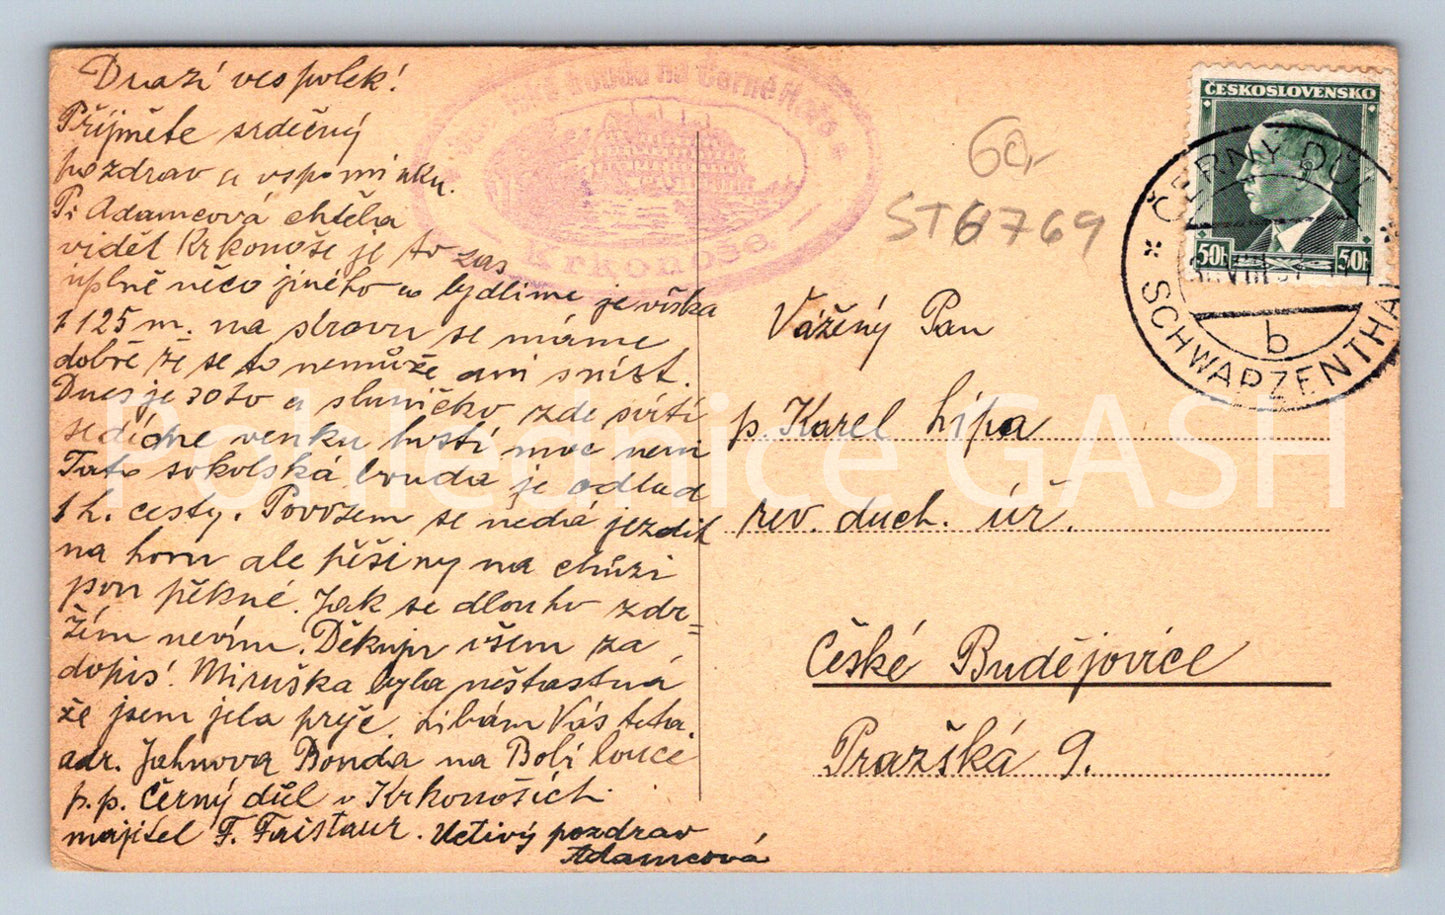 Drazí vespolek!
Přijměte srdečný
pozdrav a vspomínku.
Pí Adamcová chtěla
vidět Krkonoše je to zas
úplně něco jiného co bydlíme je výška
1125 m. na stravu se máme
dobře že se to nemůže ani sníst.
Dnes je 30to a sluníčko zde svítí
sedíme venku hostí moc není
Tato sokolská bouda je odtud
1 h. cesty. Povozem se nedá jezdit
na horu ale pěšiny na chůzi
jsou pěkné. Jak se dlouho zdr=
žím nevím. Děkuju všem za
dopis! Miruška byla nešťastná
že jsem jela pryč. Líbám Vás teta.
adr. Jahnova Bouda na Bolí louce
p. p. Černý důl v Krkonoších.
majitel F. Faistaur. Uctivý pozdrav
Adamcová
bouda na Černé Hoře
Krkonoše
60,-
ST6769
ČESKOSLOVENSKO
50h 50h
* ČERNÝ DŮL *
VIII 37
b
SCHWARZENTHAL
Vážený Pan
p. Karel Lípa
rev. duch. úř.
České Budějovice
Pražská 9.
Pohlednice GASH